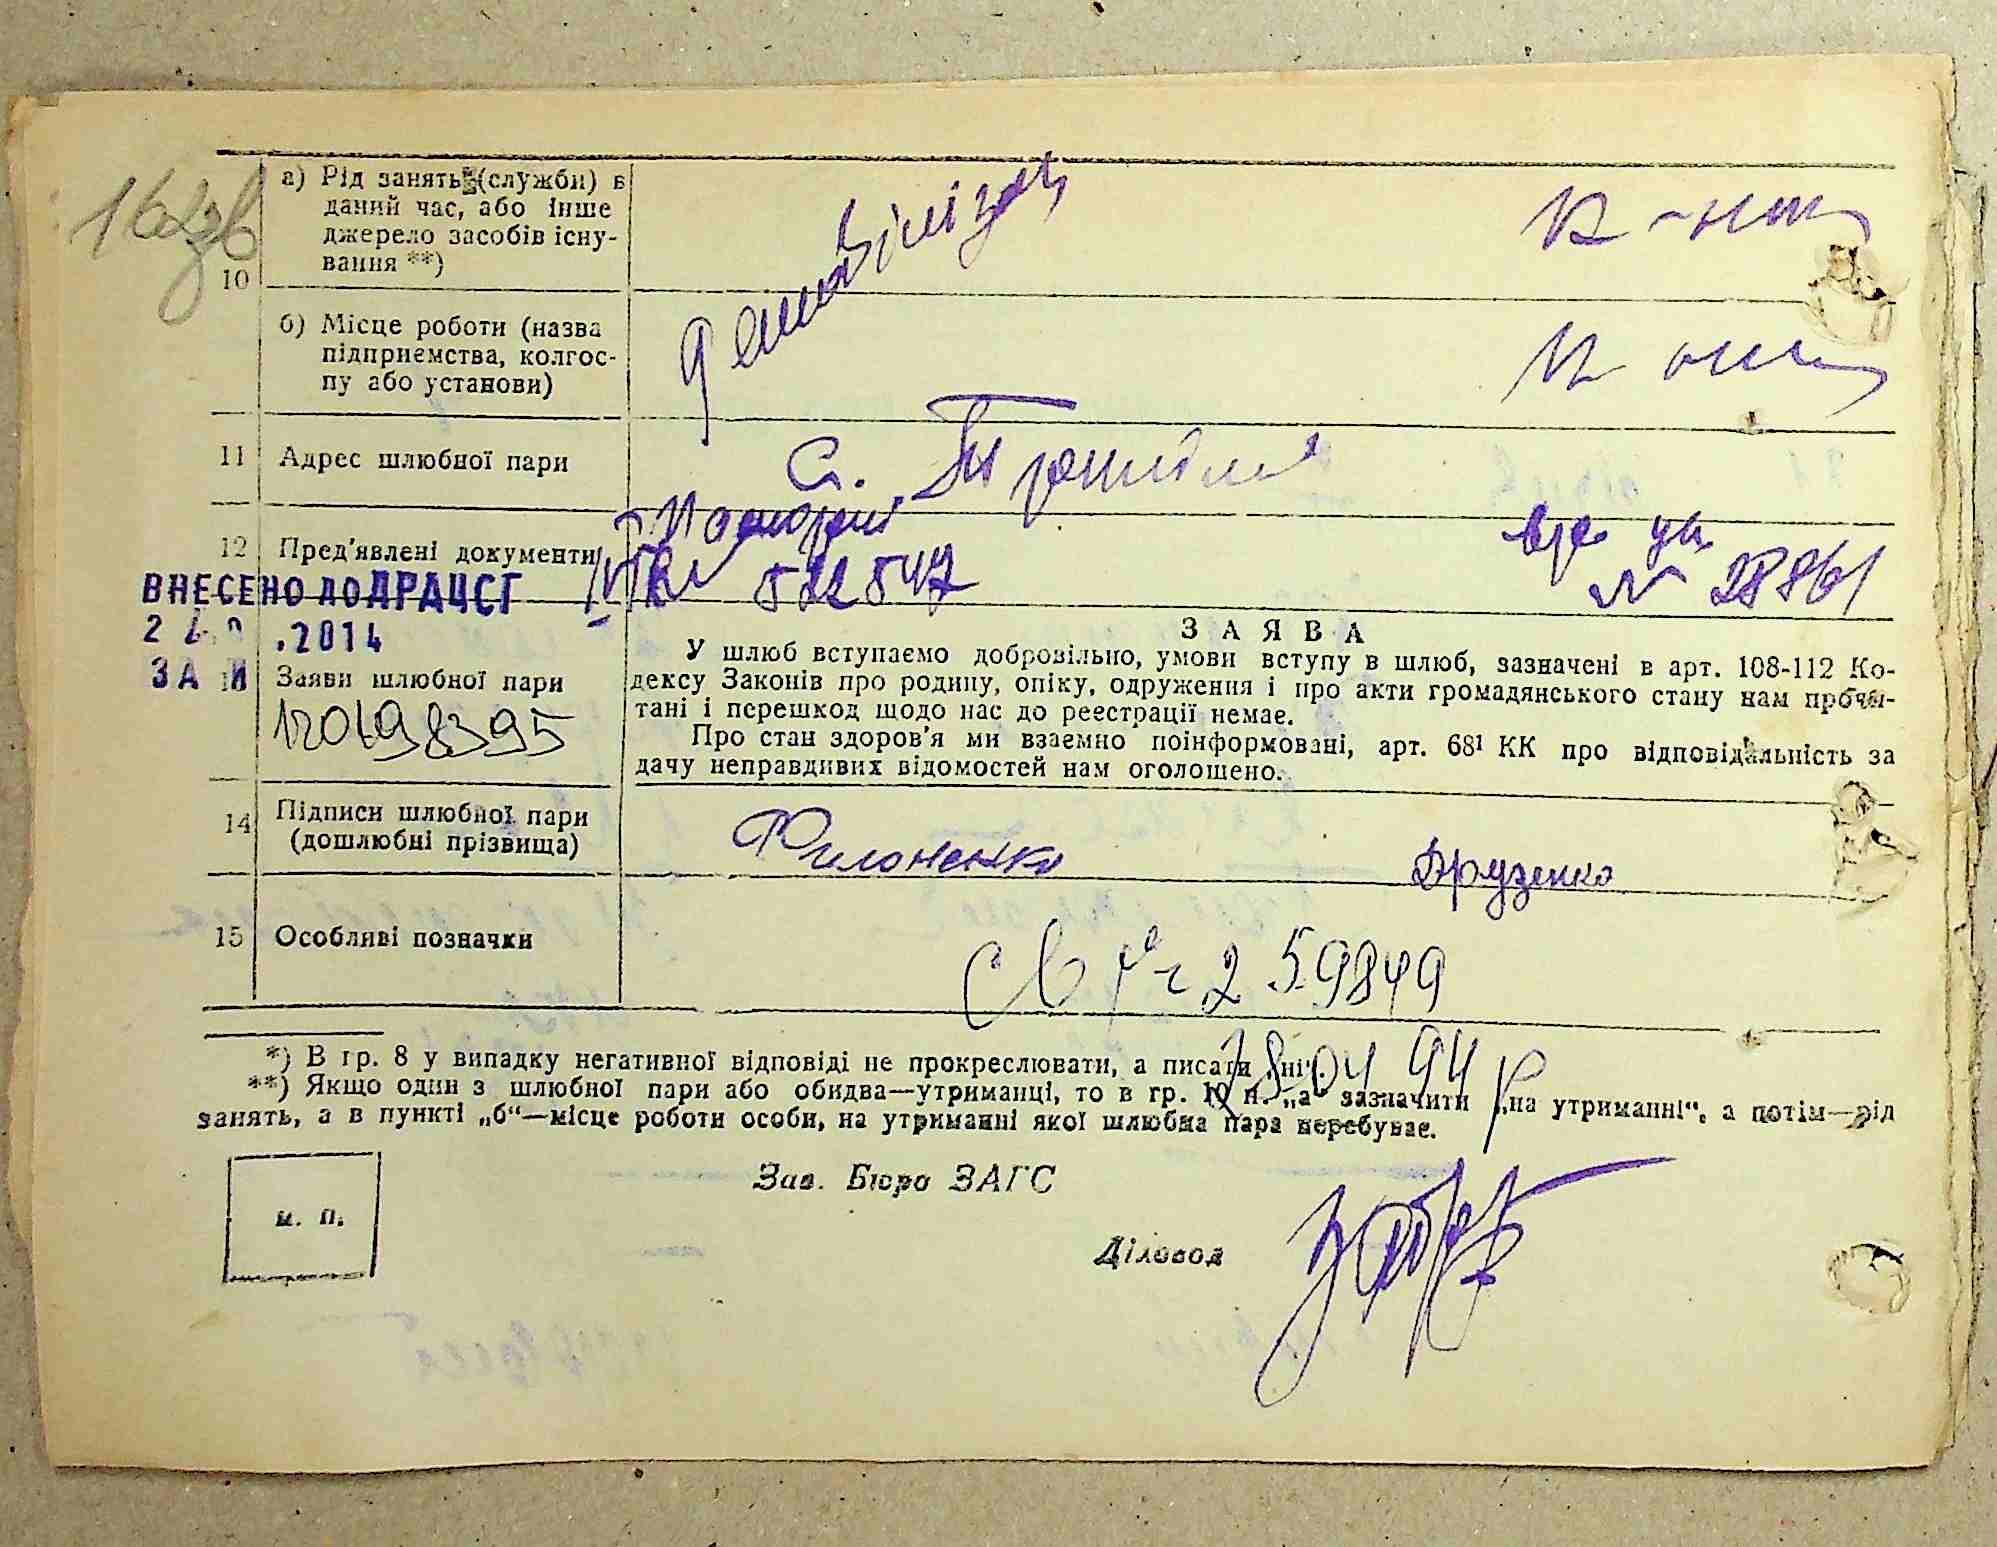 а) Рід занять (служби) в
даний час, або інше
джерело засобів існу-
вання **)
10
к-нп
б) Місце роботи (назва
підприємства, колгос-
пу або установи)
11 Адрес шлюбної пари
с.
12 Пред'явлені документи
522547
№ 28861
ВНЕСЕНО ДО ДРАЦСГ
.2014
ЗА
Заяви шлюбної пари
120198395
ЗАЯВА
У шлюб вступаємо добровільно, умови вступу в шлюб, зазначені в арт. 108-112 Ко-
дексу Законів про родину, опіку, одруження і про акти громадянського стану нам прочи-
тані і перешкод щодо нас до реестрації немае.
Про стан здоров'я ми взаемно поінформовані, арт. 68¹ КК про відповідальність за
дачу неправдивих відомостей нам оголошено.
14 Підписи шлюбної пари
(дошлюбні прізвища)
Филоненко Друзенко
15 Особливі позначки
259849
*) В гр. 8 у випадку негативної відповіді не прокреслювати, а писати „ні“.
**) Якщо один з шлюбної пари або обидва—утриманці, то в гр. 10 п. „а“ зазначити „на утриманні“, а потім—рід
занять, а в пункті „б“—місце роботи особи, на утриманні якої шлюбна пара перебувае.
м. п.
Зав. Бюро ЗАГС
Діловод